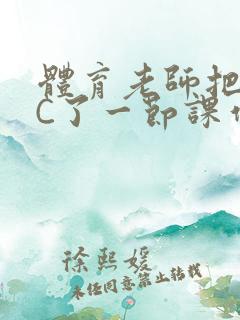 體育老師把
C了一節課
徐熙媛
未经同意禁止转载